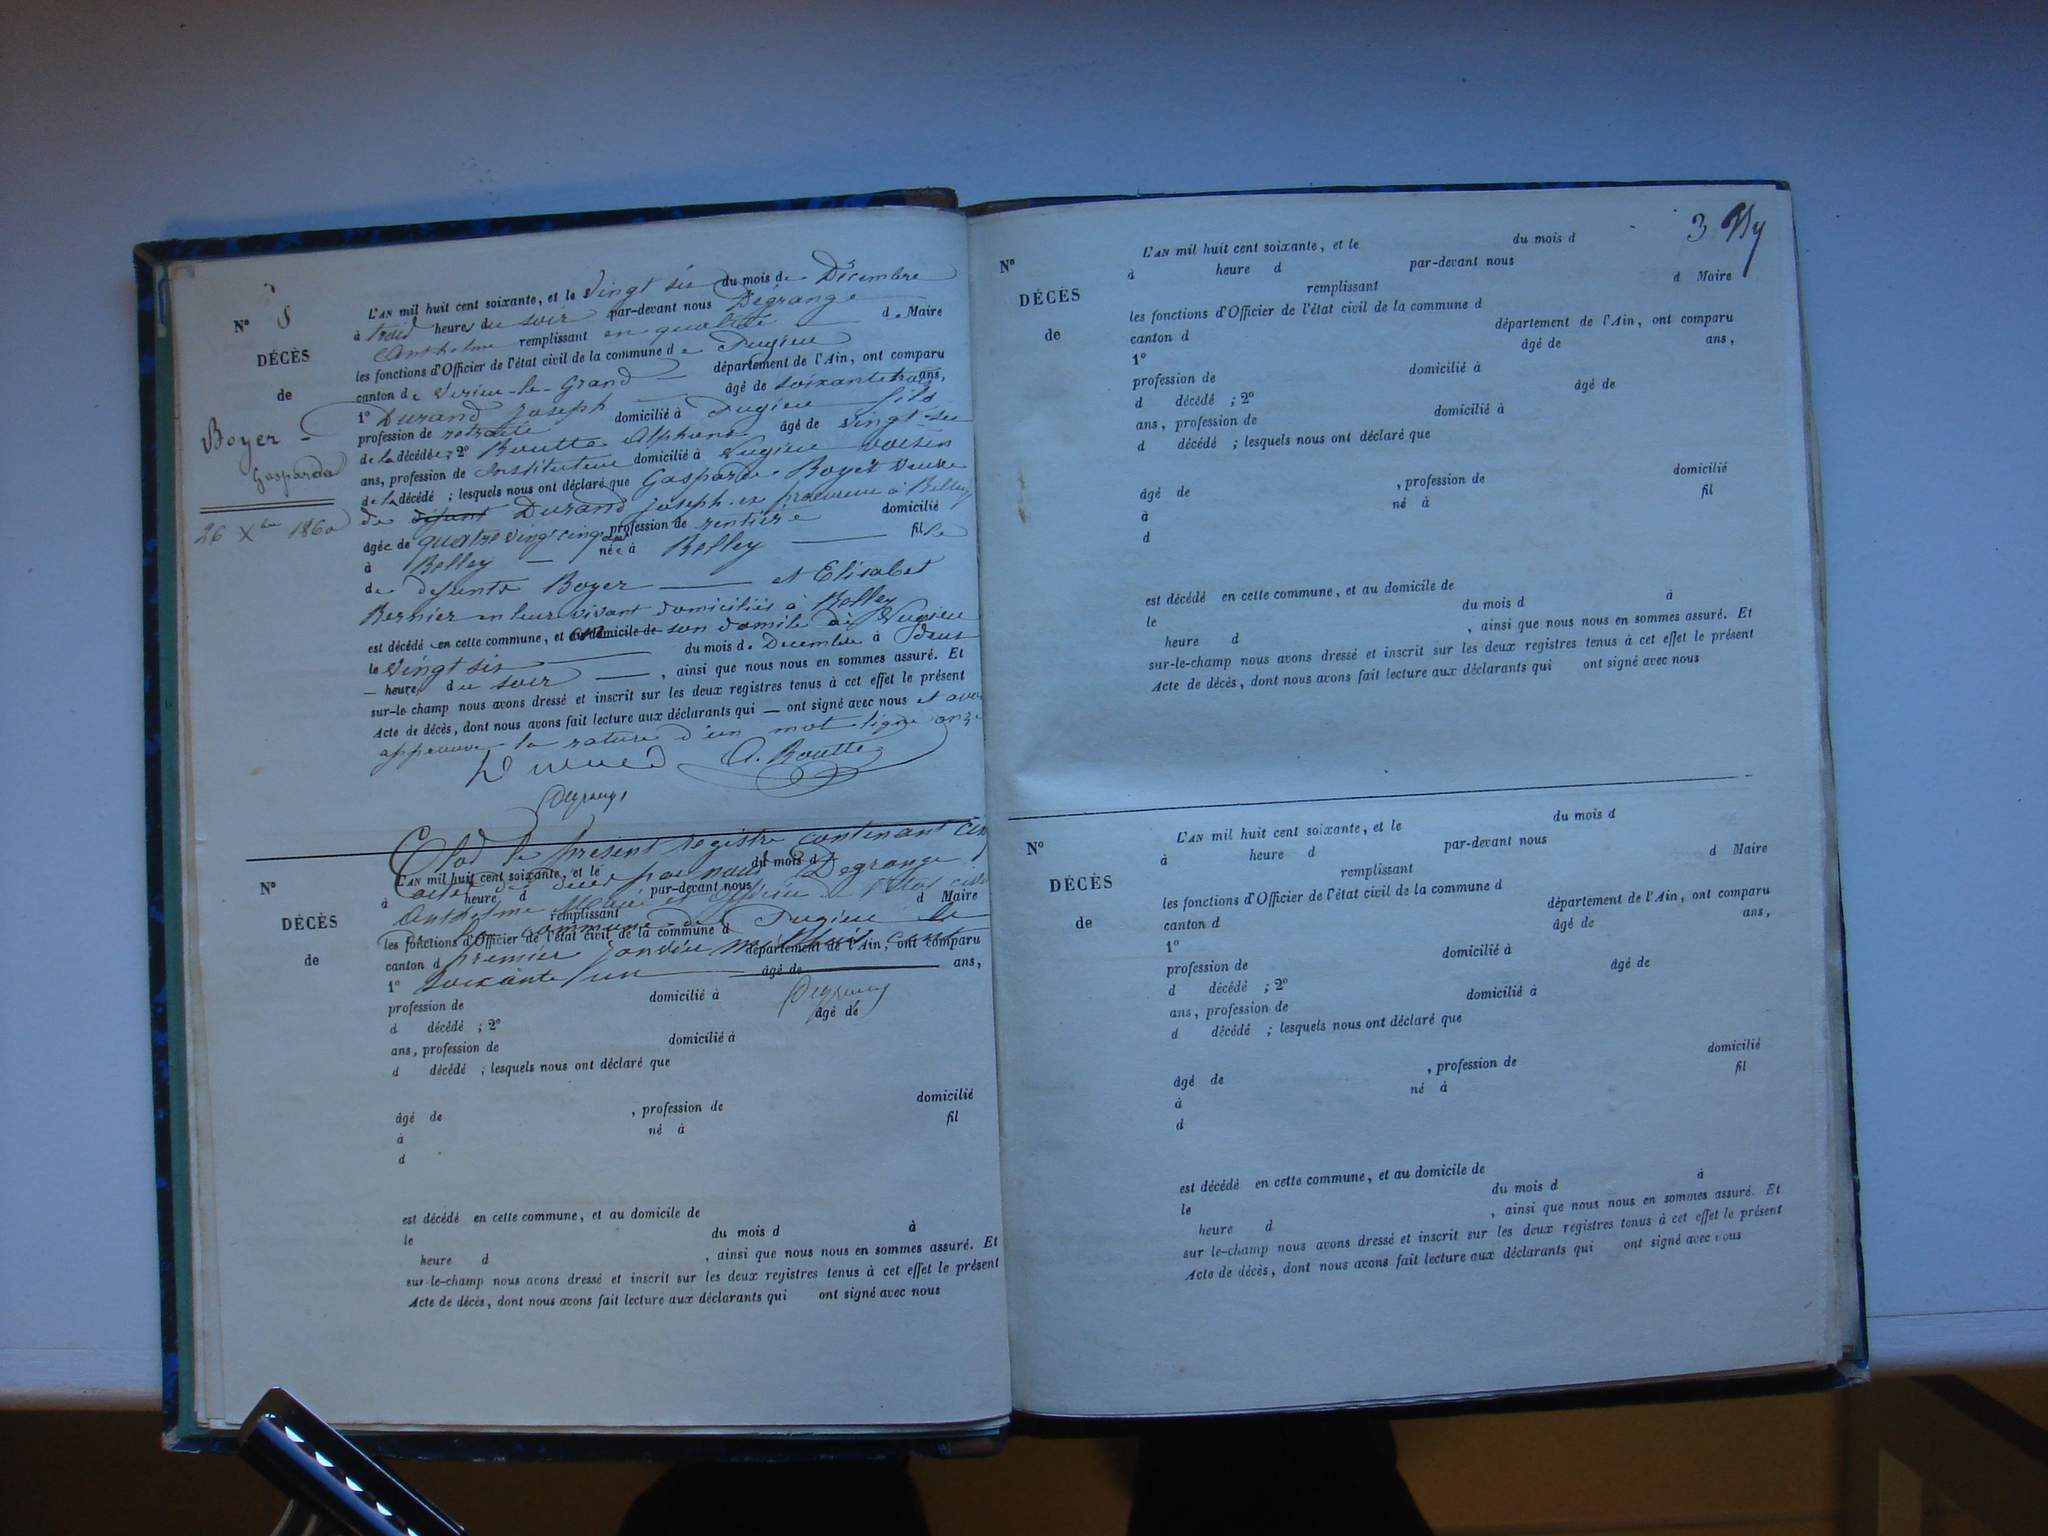 N° 5
DÉCÈS
de
Boyer
Gasparde
26 Xbre 1860
L'AN mil huit cent soixante, et le Vingt six du mois de Décembre
à trois heures du soir par-devant nous Dégrange
Anthelme remplissant en qualité de Maire
les fonctions d'Officier de l'état civil de la commune de Pugieu
canton de Virieu-le-Grand département de l'Ain, ont comparu
1° Durand Joseph âgé de soixante trois ans,
profession de retraité domicilié à Pugieu fils
de la décédée; 2° Boutte Alphonse âgé de vingt-six
ans, profession de Instituteur domicilié à Pugieu voisin
de la décédé ; lesquels nous ont déclaré que Gasparde Boyer veuve
de défunt Durand Joseph ex procureur à Belley
âgée de quatre vingt cinq ans, profession de rentière domicilié
à Belley née à Belley fille
de défunts Boyer et Elisabet
Bernier en leur vivant domiciliés à Belley
est décédé en cette commune, et au domicile de son domile à Pugieu
le Vingt six du mois de Decembre à deux
heure du soir , ainsi que nous nous en sommes assuré. Et
sur-le-champ nous avons dressé et inscrit sur les deux registres tenus à cet effet le présent
Acte de décès, dont nous avons fait lecture aux déclarants qui ont signé avec nous et avons
approuvé la rature d'un mot ligne onze
Durand A. Boutte
Degrange
Clos le présent registre contenant cinq
actes de décès par nous Degrange
Anthelme Maire et officier de l'Etat civil
de la commune de Pugieu le
premier Janvier mil huit cent
soixante un
Degrange
N°
DÉCÈS
de
L'AN mil huit cent soixante, et le du mois d
à heure d par-devant nous
remplissant d Maire
les fonctions d'Officier de l'état civil de la commune d
canton d département de l'Ain, ont comparu
1° âgé de ans,
profession de domicilié à
d décédé ; 2° âgé de
ans, profession de domicilié à
d décédé ; lesquels nous ont déclaré que
âgé de , profession de domicilié
à né à fil
d
est décédé en cette commune, et au domicile de
le du mois d à
heure d , ainsi que nous nous en sommes assuré. Et
sur-le-champ nous avons dressé et inscrit sur les deux registres tenus à cet effet le présent
Acte de décès, dont nous avons fait lecture aux déclarants qui ont signé avec nous
3
N°
DÉCÈS
de
L'AN mil huit cent soixante, et le du mois d
à heure d par-devant nous
remplissant d Maire
les fonctions d'Officier de l'état civil de la commune d
canton d département de l'Ain, ont comparu
1° âgé de ans,
profession de domicilié à
d décédé ; 2° âgé de
ans, profession de domicilié à
d décédé ; lesquels nous ont déclaré que
âgé de , profession de domicilié
à né à fil
d
est décédé en cette commune, et au domicile de
le du mois d à
heure d , ainsi que nous nous en sommes assuré. Et
sur-le-champ nous avons dressé et inscrit sur les deux registres tenus à cet effet le présent
Acte de décès, dont nous avons fait lecture aux déclarants qui ont signé avec nous
N°
DÉCÈS
de
L'AN mil huit cent soixante, et le du mois d
à heure d par-devant nous
remplissant d Maire
les fonctions d'Officier de l'état civil de la commune d
canton d département de l'Ain, ont comparu
1° âgé de ans,
profession de domicilié à
d décédé ; 2° âgé de
ans, profession de domicilié à
d décédé ; lesquels nous ont déclaré que
âgé de , profession de domicilié
à né à fil
d
est décédé en cette commune, et au domicile de
le du mois d à
heure d , ainsi que nous nous en sommes assuré. Et
sur le-champ nous avons dressé et inscrit sur les deux registres tenus à cet effet le présent
Acte de décès, dont nous avons fait lecture aux déclarants qui ont signé avec nous